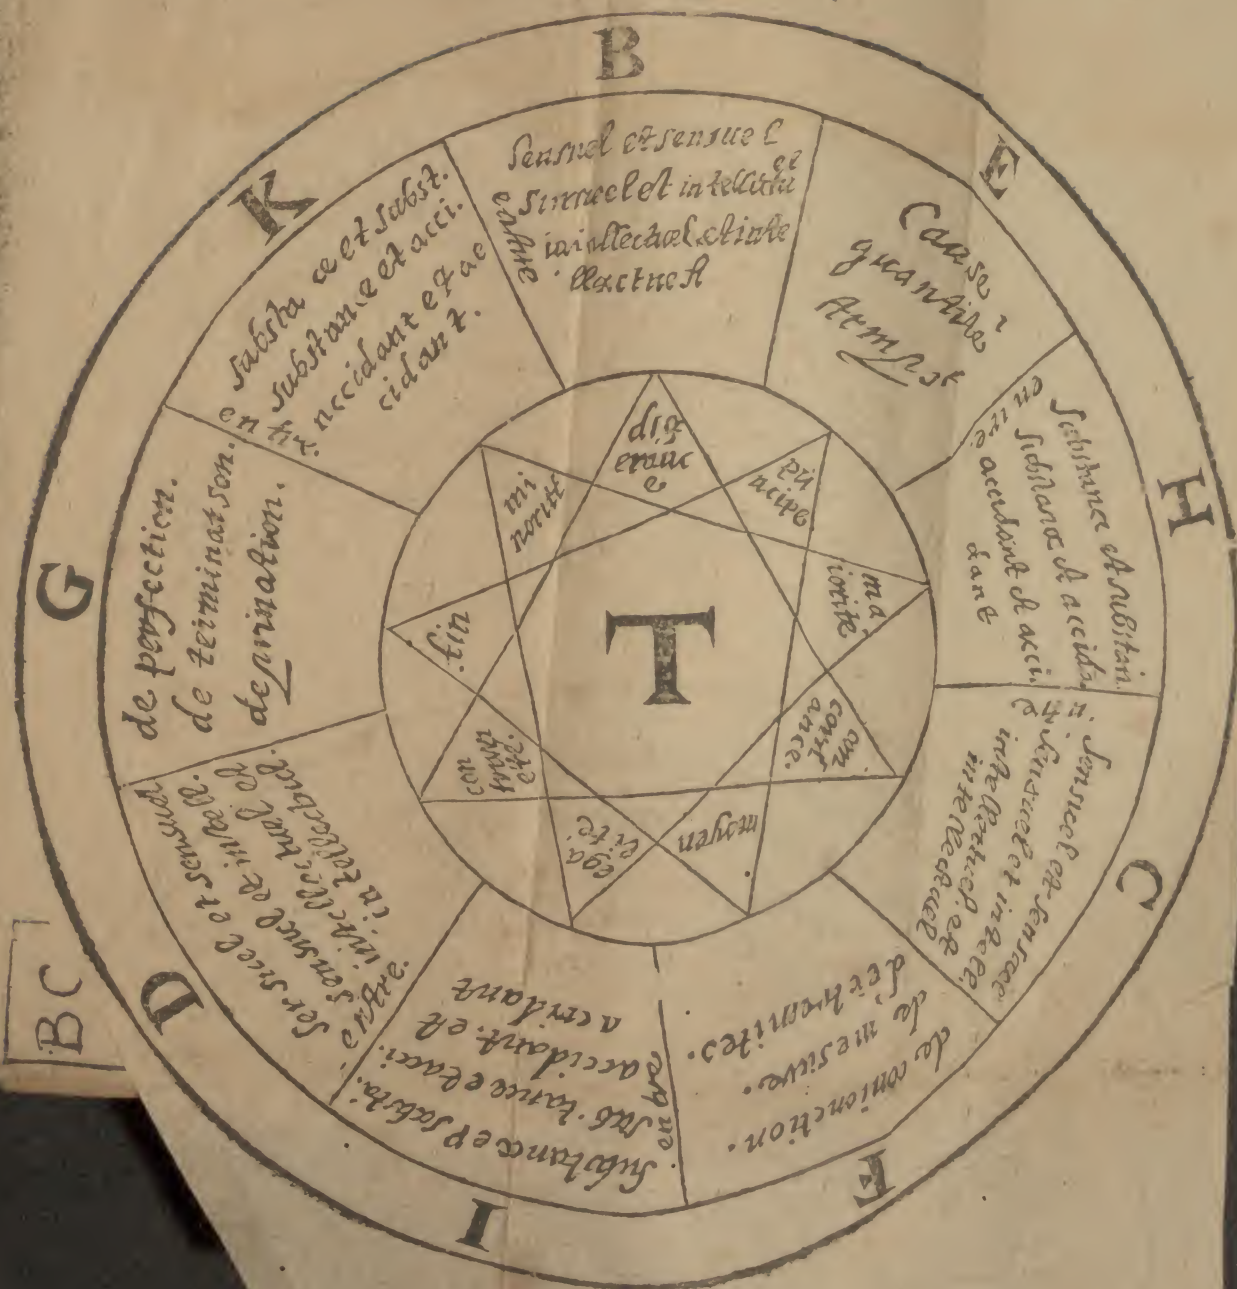 B
Sensuel et sensuel
entre
intellectuel et inte
llectuel
E
Cause
quantité
H
Substance et substan.
entre
substance et accidã
accidant et acci
dant
C
Sensuel et sensuel
sensuel et intelle.
intellectuel et
intellectuel
F
de conionction.
de mesure.
d'extremites.
I
Substance et substã.
entre
substance et acci.
accidant. et
accidant
D
Sensuel et sensuel
sensuel et intelle.
entre
intellectuel et
intellectuel.
G
de perfection.
de terminatson.
de privation.
K
substa ce et subst.
substance et acci.
entre
accidant et ac
cidant.
dif
eranc
e
pri
ncipe
ma
iorité
con
cord
ance.
moyen
ega
lité
con
trari
eté.
fin
mi
norité
T
BC